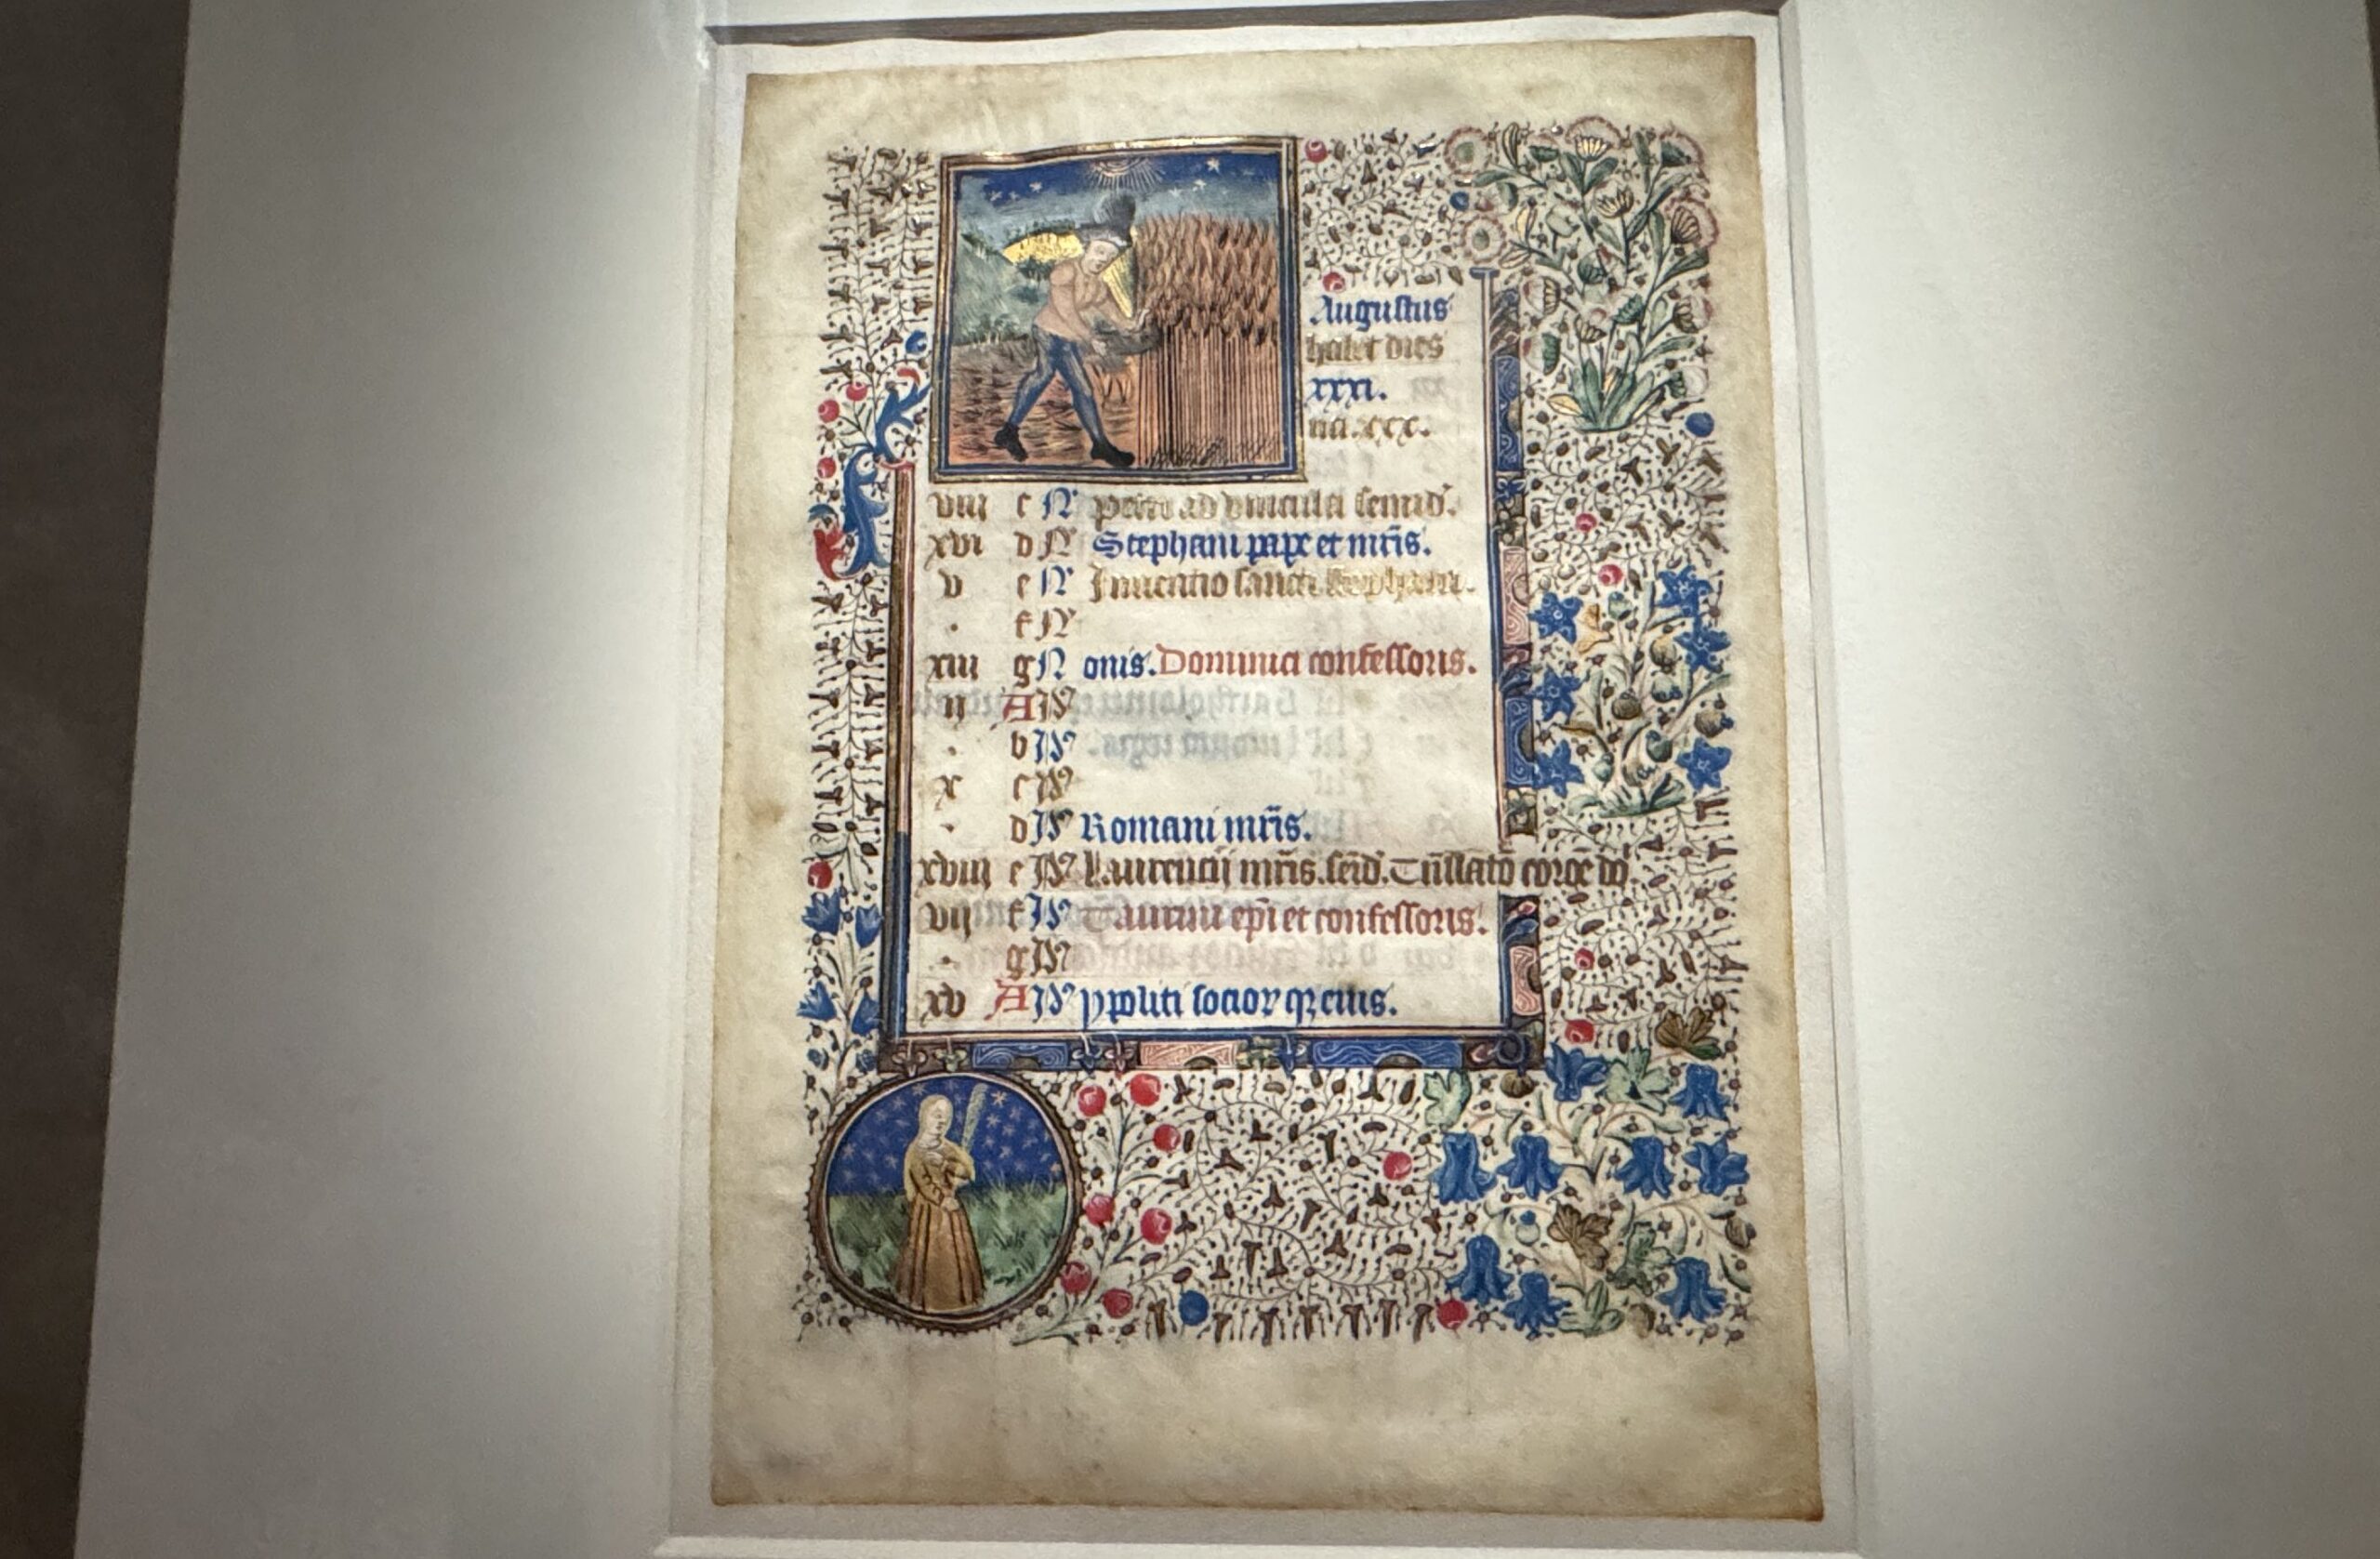 Augustus
habet dies
xxxi.
na. xxx.
viii c N Petri ad vincula semid.
xvi d N Stephani pape et mr̄is.
v e N Inuentio sancti Stephani.
. f N
xiii g N onis. Dominici confessoris.
ii A Id
. b Id
x c Id
. d Id Romani mr̄is.
xviii e Id Laurencii mr̄is.
vii f Id Taurini ep̄i et confessoris.
. g Id
xv A Id ypoliti socior qz eius.